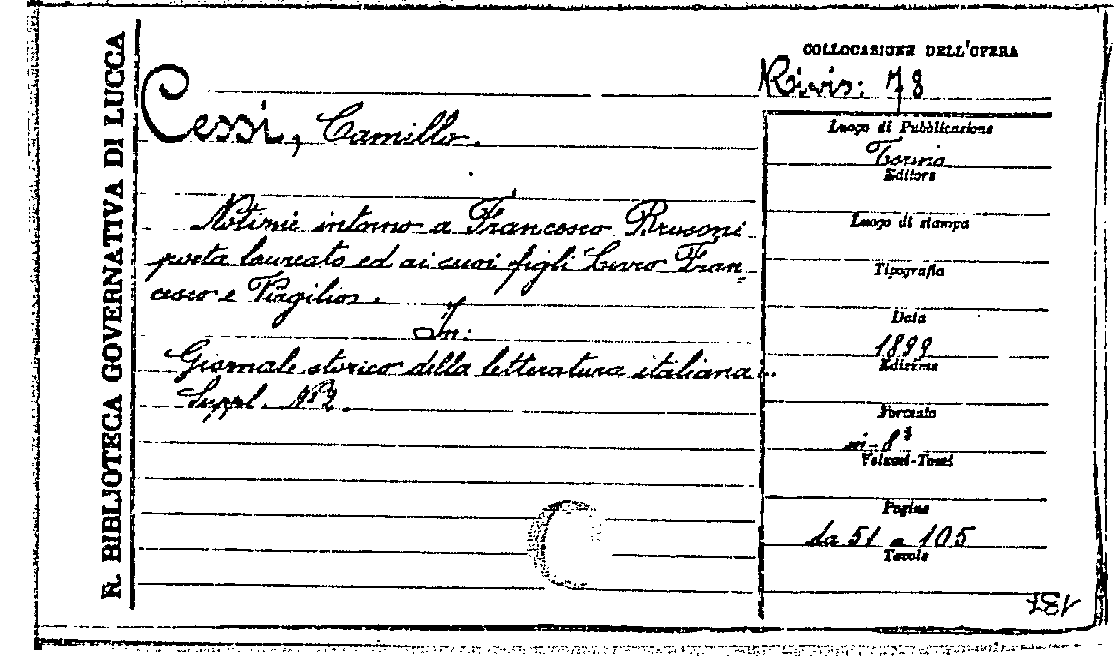 R. BIBLIOTECA GOVERNATIVA DI LUCCA
COLLOCAZIONE DELL'OPERA
Rivis: 78
Cessi, Camillo.
Notizie intorno a Francesco Brusoni
poeta laureato ed ai suoi figli Lucio Fran-
cesco e Virgilio.
In:
Giornale storico della letteratura italiana.
Suppl. Nº2.
Luogo di Pubblicazione
Torino
Editore
Luogo di stampa
Tipografia
Data
1899
Edizione
Formato
in-8º
Volumi-Tomi
Pagine
da 51 a 105
Tavole
137